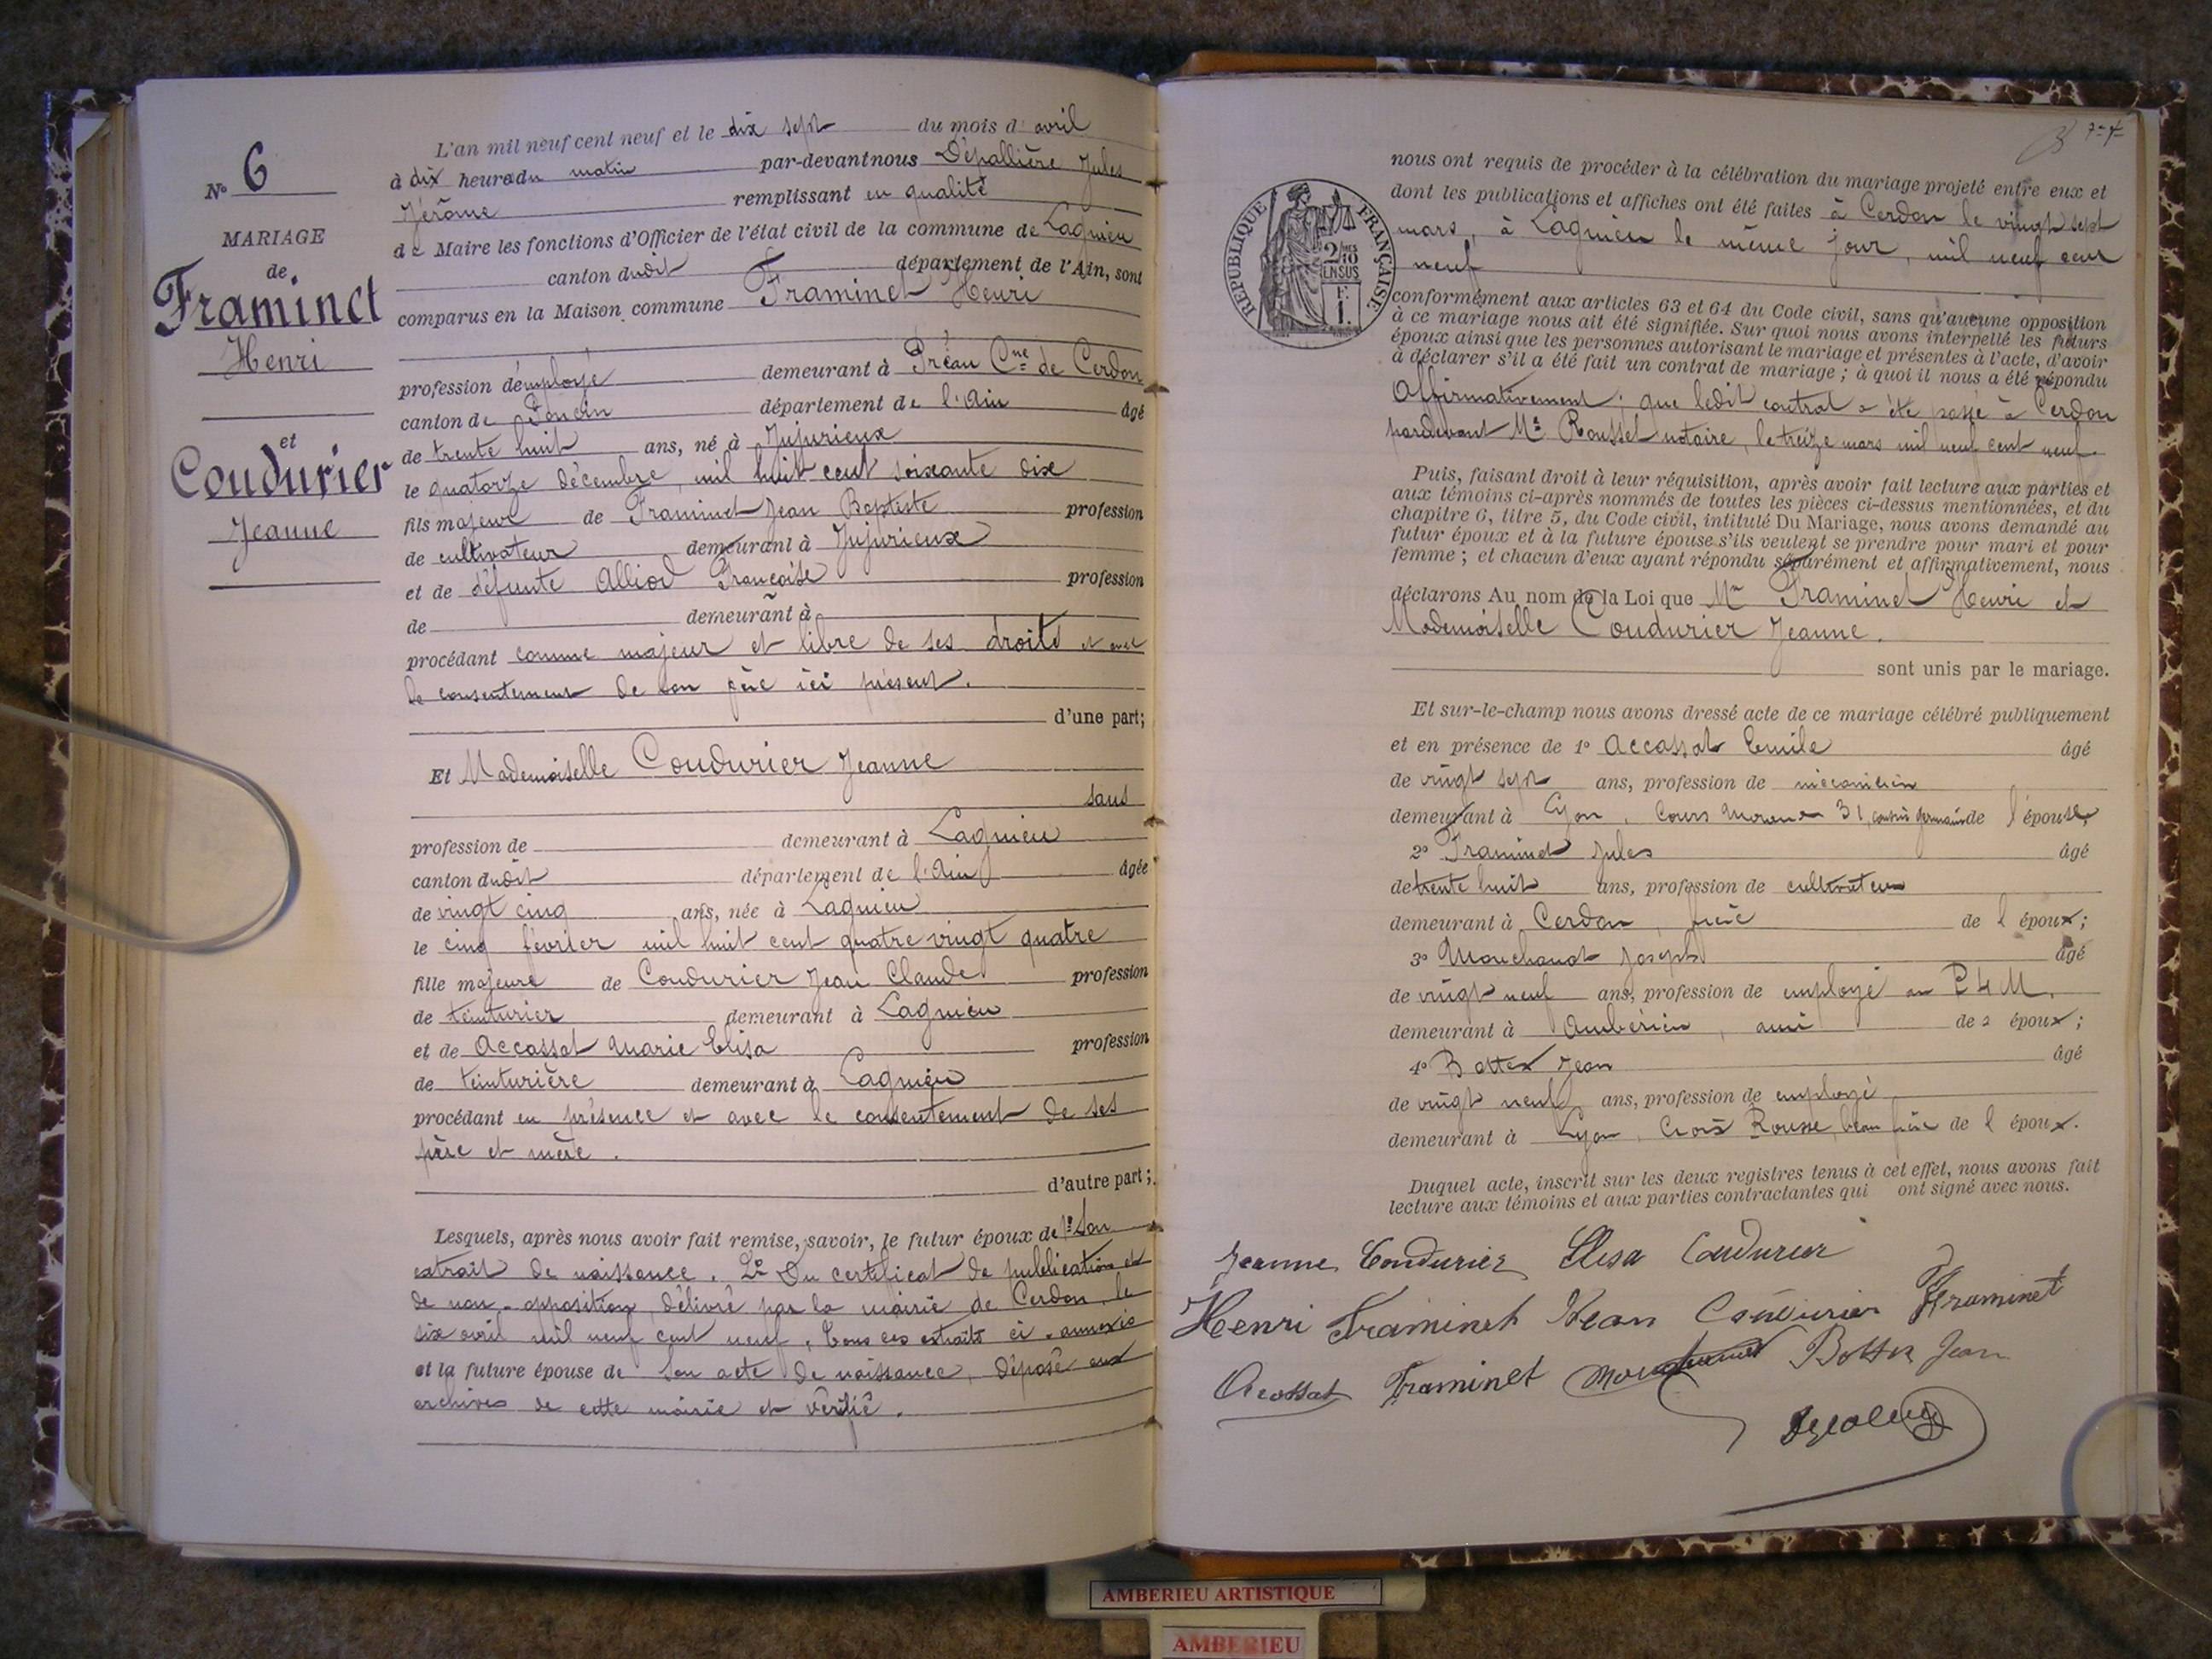 N° 6
MARIAGE
de
Framinet
Henri
et
Coudurier
Jeanne
L'an mil neuf cent neuf et le dix sept du mois d'avril
à dix heures du matin par-devant nous Dépallière Jules
Jérôme remplissant en qualité
de Maire les fonctions d'Officier de l'état civil de la commune de Lagnieu
canton dudit département de l'Ain, sont
comparus en la Maison commune Framinet Henri
profession d'employé demeurant à Préau Cne de Cerdon
canton de Poncin département de l'Ain âgé
de trente huit ans, né à Jujurieux
le quatorze décembre, mil huit cent soixante dix
fils majeur de Framinet Jean Baptiste profession
de cultivateur demeurant à Jujurieux
et de défunte Alliod Françoise profession
de demeurant à
procédant comme majeur et libre de ses droits et avec
le consentement de son père ici présent.
d'une part;
Et Mademoiselle Coudurier Jeanne
sans
profession de demeurant à Lagnieu
canton dudit département de l'Ain âgée
de vingt cinq ans, née à Lagnieu
le cinq février mil huit cent quatre vingt quatre
fille majeure de Coudurier Jean Claude profession
de teinturier demeurant à Lagnieu
et de Accassat Marie Elisa profession
de teinturière demeurant à Lagnieu
procédant en présence et avec le consentement de ses
père et mère.
d'autre part;
Lesquels, après nous avoir fait remise, savoir, le futur époux de 1° Son
extrait de naissance. 2° Du certificat de publication et
de non-opposition, délivré par la mairie de Cerdon, le
six avril mil neuf cent neuf. Tous ces extraits ci-annexés
et la future épouse de Son acte de naissance, déposé aux
archives de cette mairie et vérifié.
nous ont requis de procéder à la célébration du mariage projeté entre eux et
dont les publications et affiches ont été faites à Cerdon le vingt sept
mars, à Lagnieu le même jour, mil neuf cent
neuf
RÉPUBLIQUE FRANÇAISE
2/10 EN SUS
conformément aux articles 63 et 64 du Code civil, sans qu'aucune opposition
à ce mariage nous ait été signifiée. Sur quoi nous avons interpellé les futurs
époux ainsi que les personnes autorisant le mariage et présentes à l'acte, d'avoir
à déclarer s'il a été fait un contrat de mariage; à quoi il nous a été répondu
Affirmativement; que ledit contrat a été passé à Cerdon
pardevant Me Roussel notaire, le treize mars mil neuf cent neuf.
Puis, faisant droit à leur réquisition, après avoir fait lecture aux parties et
aux témoins ci-après nommés de toutes les pièces ci-dessus mentionnées, et du
chapitre 6, titre 5, du Code civil, intitulé Du Mariage, nous avons demandé au
futur époux et à la future épouse s'ils veulent se prendre pour mari et pour
femme; et chacun d'eux ayant répondu séparément et affirmativement, nous
déclarons Au nom de la Loi que Mr Framinet Henri et
Mademoiselle Coudurier Jeanne.
sont unis par le mariage.
Et sur-le-champ nous avons dressé acte de ce mariage célébré publiquement
et en présence de 1° Accassat Emile âgé
de vingt sept ans, profession de mécanicien
demeurant à Lyon, Cours 31, cousin germain de l'épouse;
2° Framinet Jules âgé
de trente huit ans, profession de cultivateur
demeurant à Cerdon, frère de l'époux;
3° Mouchanot Joseph âgé
de vingt neuf ans, profession de employé au P L M.
demeurant à Ambérieu, ami des époux;
4° Bottex Jean âgé
de vingt neuf ans, profession de employé
demeurant à Lyon, Croix Rousse, beau frère de l'époux.
Duquel acte, inscrit sur les deux registres tenus à cet effet, nous avons fait
lecture aux témoins et aux parties contractantes qui ont signé avec nous.
Jeanne Coudurier Elisa Coudurier
Henri Framinet Jean Coudurier Framinet
Accassat Framinet Bottex Jean
AMBERIEU ARTISTIQUE
AMBERIEU